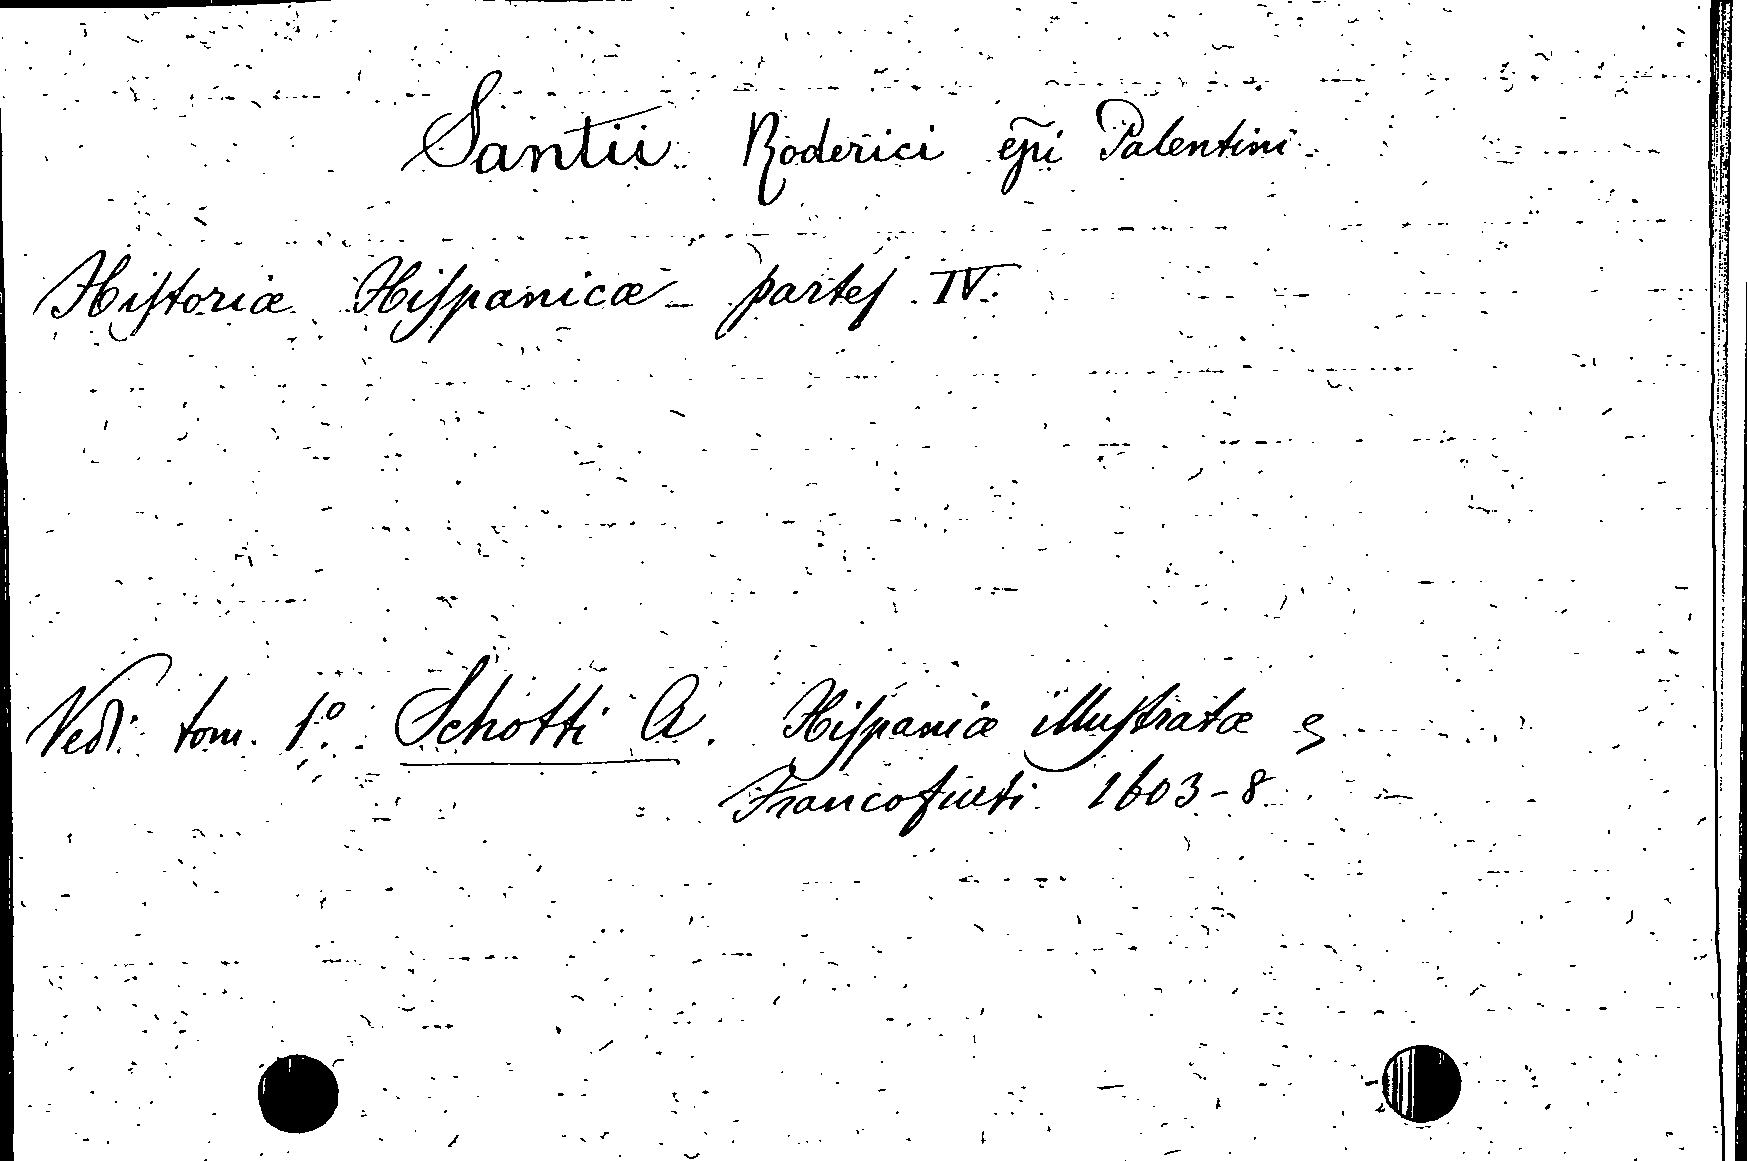 Santii Roderici ep̃i Palentini
Hiſtoriæ Hiſpanicæ - parteſ IV.
Vedi tom. 1º. Schotti A. Hiſpaniæ illuſtratæ
Francofurti 1603-8